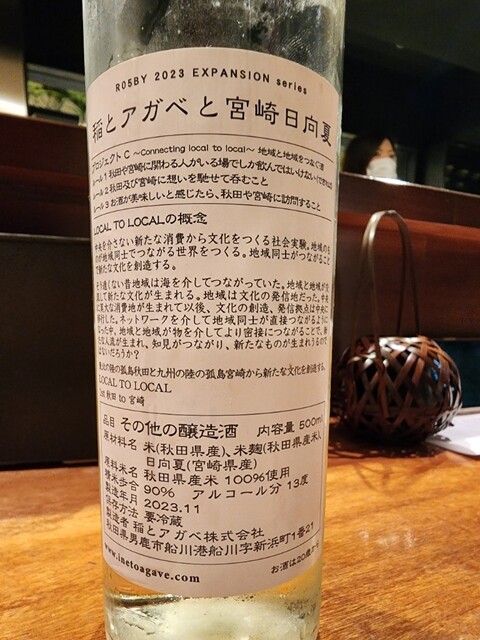 R05BY 2023 EXPANSION series
稲とアガベと宮崎日向夏
プロジェクト C ～Connecting local to local～ 地域と地域をつなぐ酒
ルール1 秋田や宮崎に関わる人がいる場でしか飲んではいけない
ルール2 秋田及び宮崎に想いを馳せて呑むこと
ルール3 お酒が美味しいと感じたら、秋田や宮崎に訪問すること
LOCAL TO LOCALの概念
中央を介さない新たな消費から文化をつくる社会実験。地域のも
のが地域同士でつながる世界をつくる。地域同士がつながること
で新たな文化を創造する。
そう遠くない昔地域は海を介してつながっていた。地域と地域が
して新たな文化が生まれる。地域は文化の発信地だった。中央
に莫大な消費地が生まれて以後、文化の創造、発信拠点は中央に
移行した。ネットワークを介して地域同士が直接つながるように
なった中、地域と地域が物を介してより密接につながることで、新
たな人流が生まれ、知見がつながり、新たなものが生まれうるので
はないだろうか？
の陸の孤島秋田と九州の陸の孤島宮崎から新たな文化を創造する。
LOCAL TO LOCAL
1st 秋田 to 宮崎
品目 その他の醸造酒 内容量 500ml
原材料名 米(秋田県産)、米麹(秋田県産米)、
日向夏(宮崎県産)
原料米名 秋田県産米 100%使用
精米歩合 90% アルコール分 13度
製造年月 2023.11
保存方法 要冷蔵
製造者 稲とアガベ株式会社
秋田県男鹿市船川港船川字新浜町1番21
www.inetoagave.com
お酒は20歳から